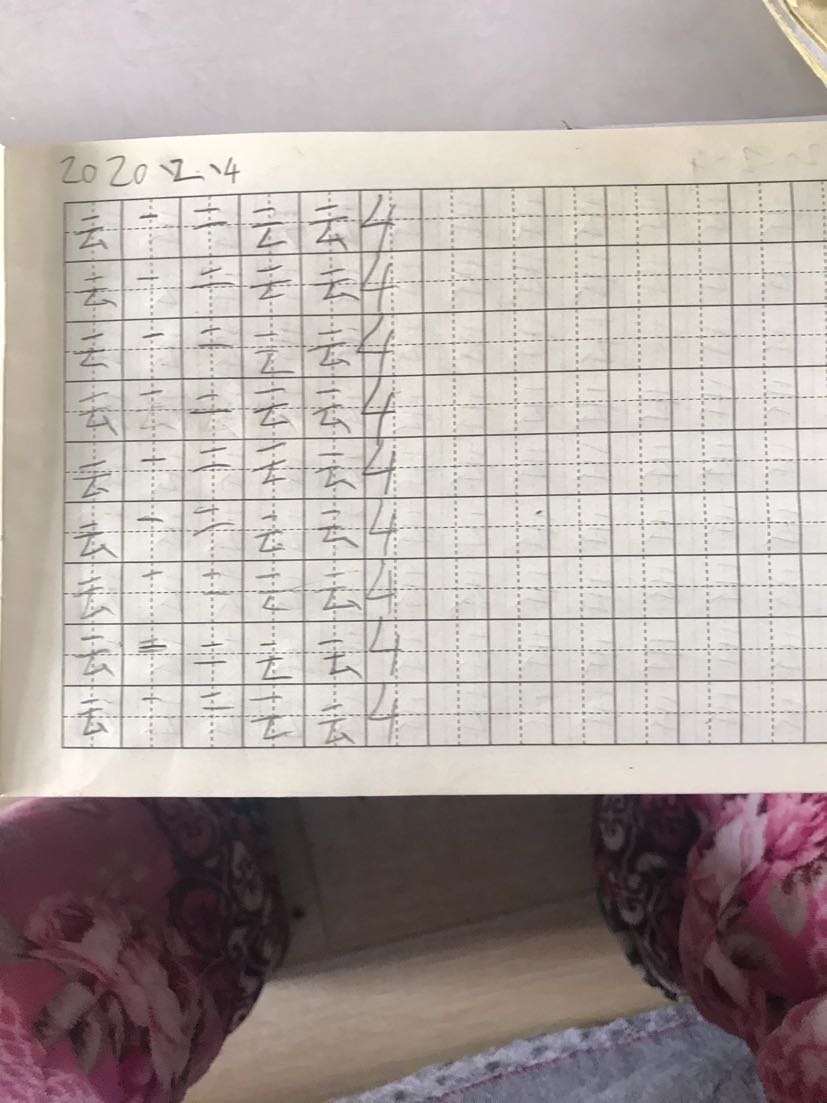 2020、2、4
云 一 二 云 4
云 一 二 云 4
云 一 二 云 4
云 一 二 云 4
云 一 二 云 4
云 一 二 云 4
云 一 二 云 4
云 二 云 4
云 一 二 云 4